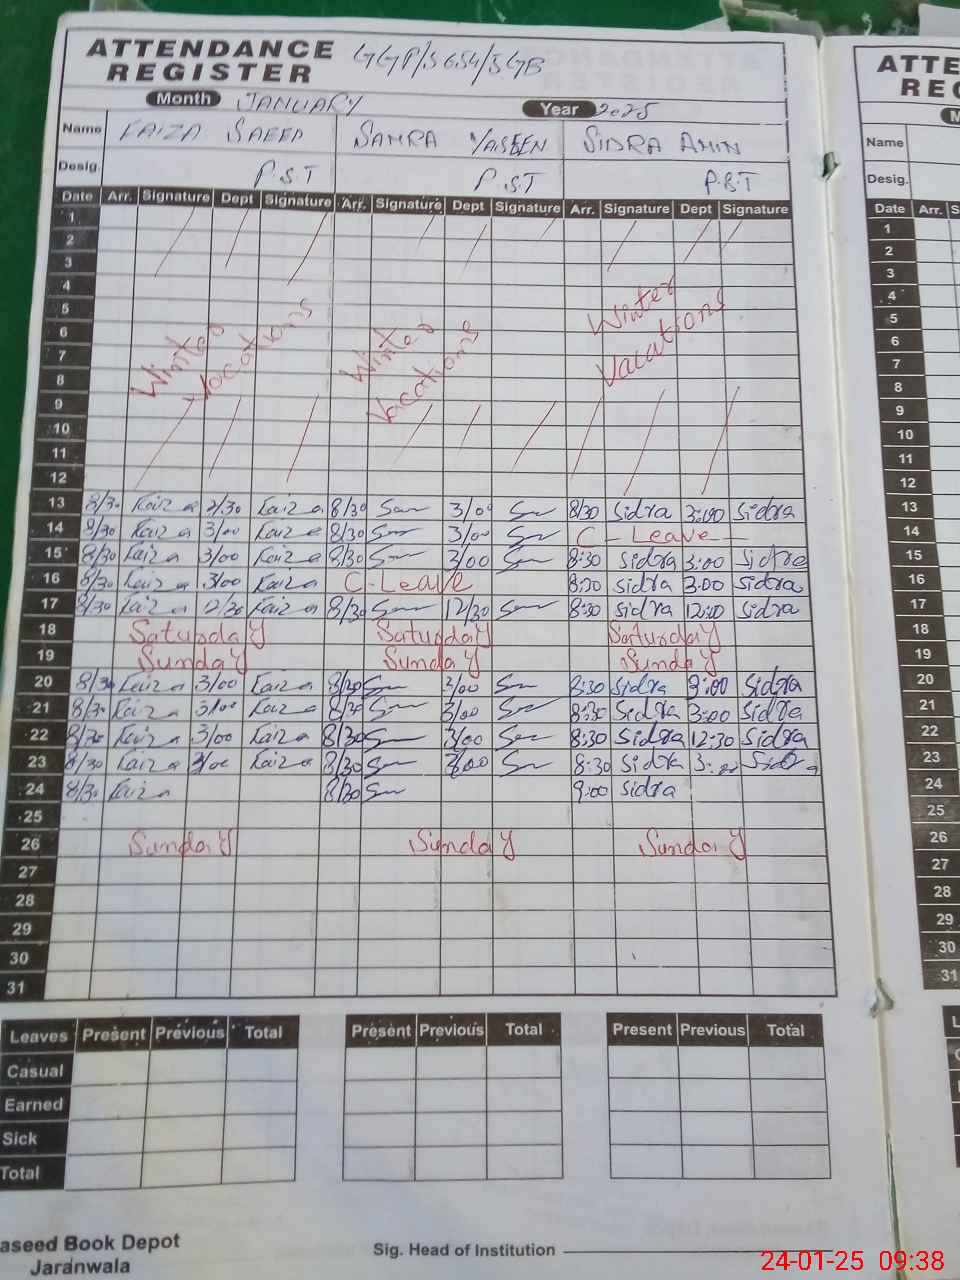 ATTENDANCE
REGISTER
Month JANUARY Year 2025
Name FAIZA SAEED SAMRA YASEEN SIDRA AMIN
Desig. P.S.T P.S.T P.S.T
Date Arr. Signature Dept Signature Arr. Signature Dept Signature Arr. Signature Dept Signature
1
2
3
4
5
6 Winter Vacations Winter Vacations Winter Vacations
7
8
9
10
11
12
13 8/30 Faiza Faiza 8/30 Sam 3/00 Sam 8/30 Sidra 3:00 Sidra
14 8/30 Faiza 3/00 Faiza 8/30 Sam 3/00 Sam C - Leave
15 8/30 Faiza 3/00 Faiza 8/30 Sam 3/00 Sam 8:30 Sidra 3:00 Sidra
16 8/30 Faiza 3/00 Faiza C-Leave 8:30 Sidra 3:00 Sidra
17 8/30 Faiza 12/30 Faiza 8/30 Sam 12/30 Sam 8:30 Sidra Sidra
18 Saturday Saturday Saturday
19 Sunday Sunday Sunday
20 8/30 Faiza 3/00 Faiza 8/30 Sam 3/00 Sam 8:30 Sidra 3:00 Sidra
21 8/30 Faiza 3/00 Faiza 8/30 Sam 3/00 Sam 8:30 Sidra 3:00 Sidra
22 8/30 Faiza 3/00 Faiza 8/30 Sam 3/00 Sam 8:30 Sidra 12:30 Sidra
23 8/30 Faiza 3/00 Faiza 8/30 Sam 3/00 Sam 8:30 Sidra 3:00 Sidra
24 8/30 Faiza 8/30 Sam 9:00 Sidra
25
26 Sunday Sunday Sunday
27
28
29
30
31
Leaves Present Previous Total Present Previous Total Present Previous Total
Casual
Earned
Sick
Total
aseed Book Depot
Jaranwala
Sig. Head of Institution
ATTE
REG
M
Name
Desig.
Date Arr. S
1
2
3
4
5
6
7
8
9
10
11
12
13
14
15
16
17
18
19
20
21
22
23
24
25
26
27
28
29
30
31
24-01-25 09:38